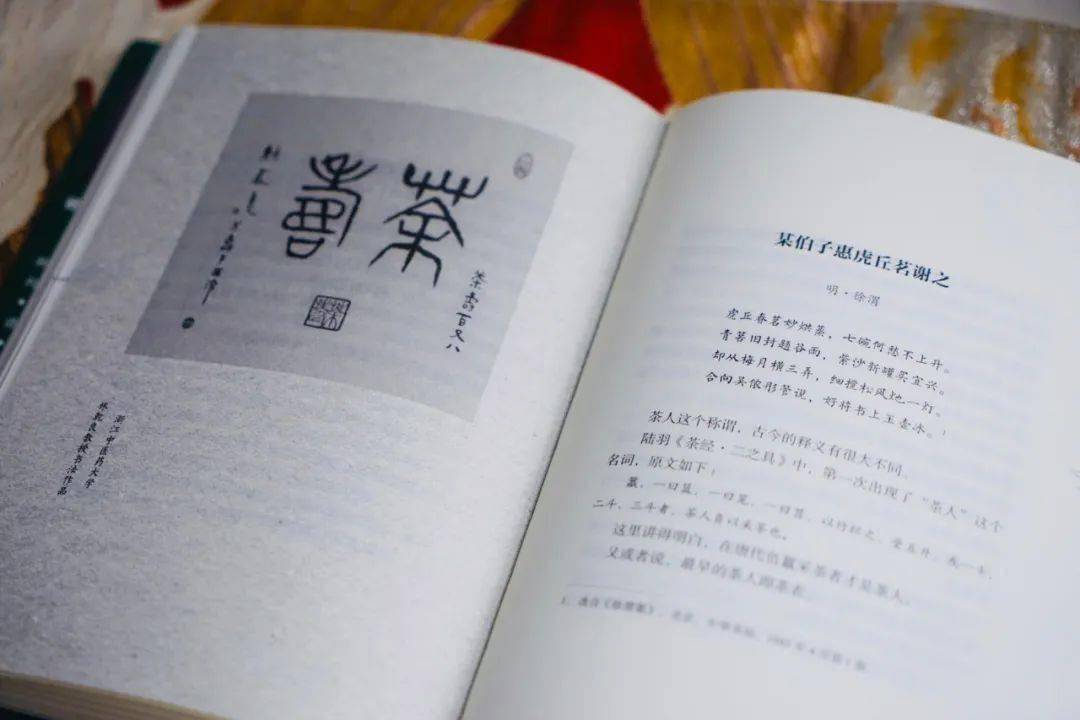 茶壽
茶壽百又八
浙江中医药大学
林乾良教授书法作品
某伯子惠虎丘茗谢之
明·徐渭
虎丘春茗妙烘蒸，七碗何愁不上升。
青箬旧封题谷雨，紫沙新罐买宜兴。
却从梅月横三弄，细搅松风灺一灯。
合向吴侬彤管说，好将书上玉壶冰。
茶人这个称谓，古今的释义有很大不同。
陆羽《茶经·二之具》中，第一次出现了“茶人”这个
名词，原文如下：
一曰篮，一曰笼，一曰筥，以竹织之，受五升，或一斗、
二斗、三斗者，茶人负以采茶也。
这里讲得明白，在唐代负籝采茶者才是茶人。
又或者说，最早的茶人即茶农。
1. 选自《徐渭集》，北京，中华书局，